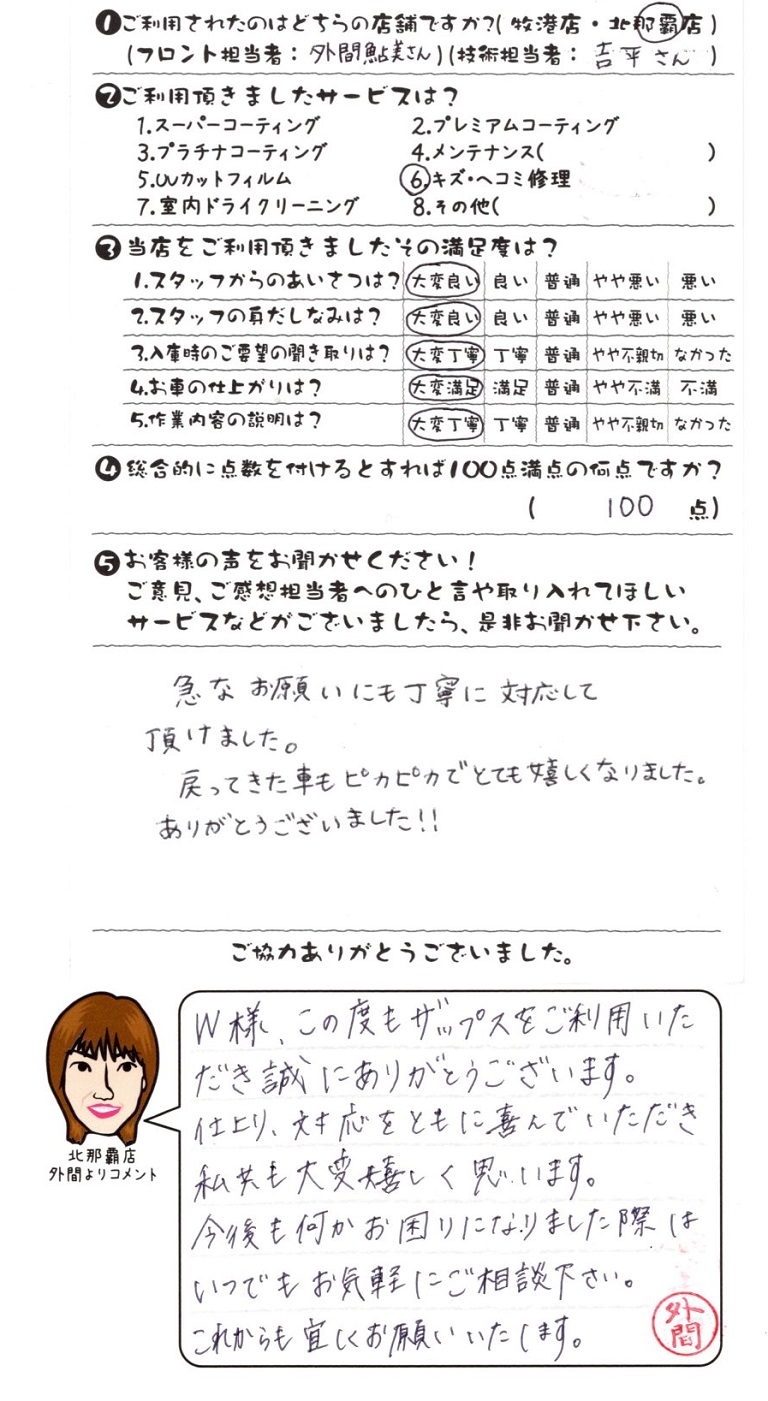 ❶ご利用されたのはどちらの店舗ですか?(牧港店・北那覇店)
(フロント担当者：外間鮎美さん)(技術担当者：吉平さん)
❷ご利用頂きましたサービスは?
1.スーパーコーティング 2.プレミアムコーティング
3.プラチナコーティング 4.メンテナンス( )
5.UVカットフィルム 6.キズ・ヘコミ修理
7.室内ドライクリーニング 8.その他( )
❸当店をご利用頂きましたその満足度は?
1.スタッフからのあいさつは? 大変良い 良い 普通 やや悪い 悪い
2.スタッフの身だしなみは? 大変良い 良い 普通 やや悪い 悪い
3.入庫時のご要望の聞き取りは? 大変丁寧 丁寧 普通 やや不親切 なかった
4.お車の仕上がりは? 大変満足 満足 普通 やや不満 不満
5.作業内容の説明は? 大変丁寧 丁寧 普通 やや不親切 なかった
❹総合的に点数を付けるとすれば100点満点の何点ですか?
( 100 点)
❺お客様の声をお聞かせください!
ご意見、ご感想担当者へのひと言や取り入れてほしい
サービスなどがございましたら、是非お聞かせ下さい。
急なお願いにも丁寧に対応して
頂けました。
戻ってきた車もピカピカでとても嬉しくなりました。
ありがとうございました!!
ご協力ありがとうございました。
W様、この度もザップスをご利用いた
だき誠にありがとうございます。
仕上り、対応をともに喜んでいただき
私共も大変嬉しく思います。
今後も何かお困りになりました際は
いつでもお気軽にご相談下さい。
これからも宜しくお願いいたします。
外間
北那覇店
外間よりコメント